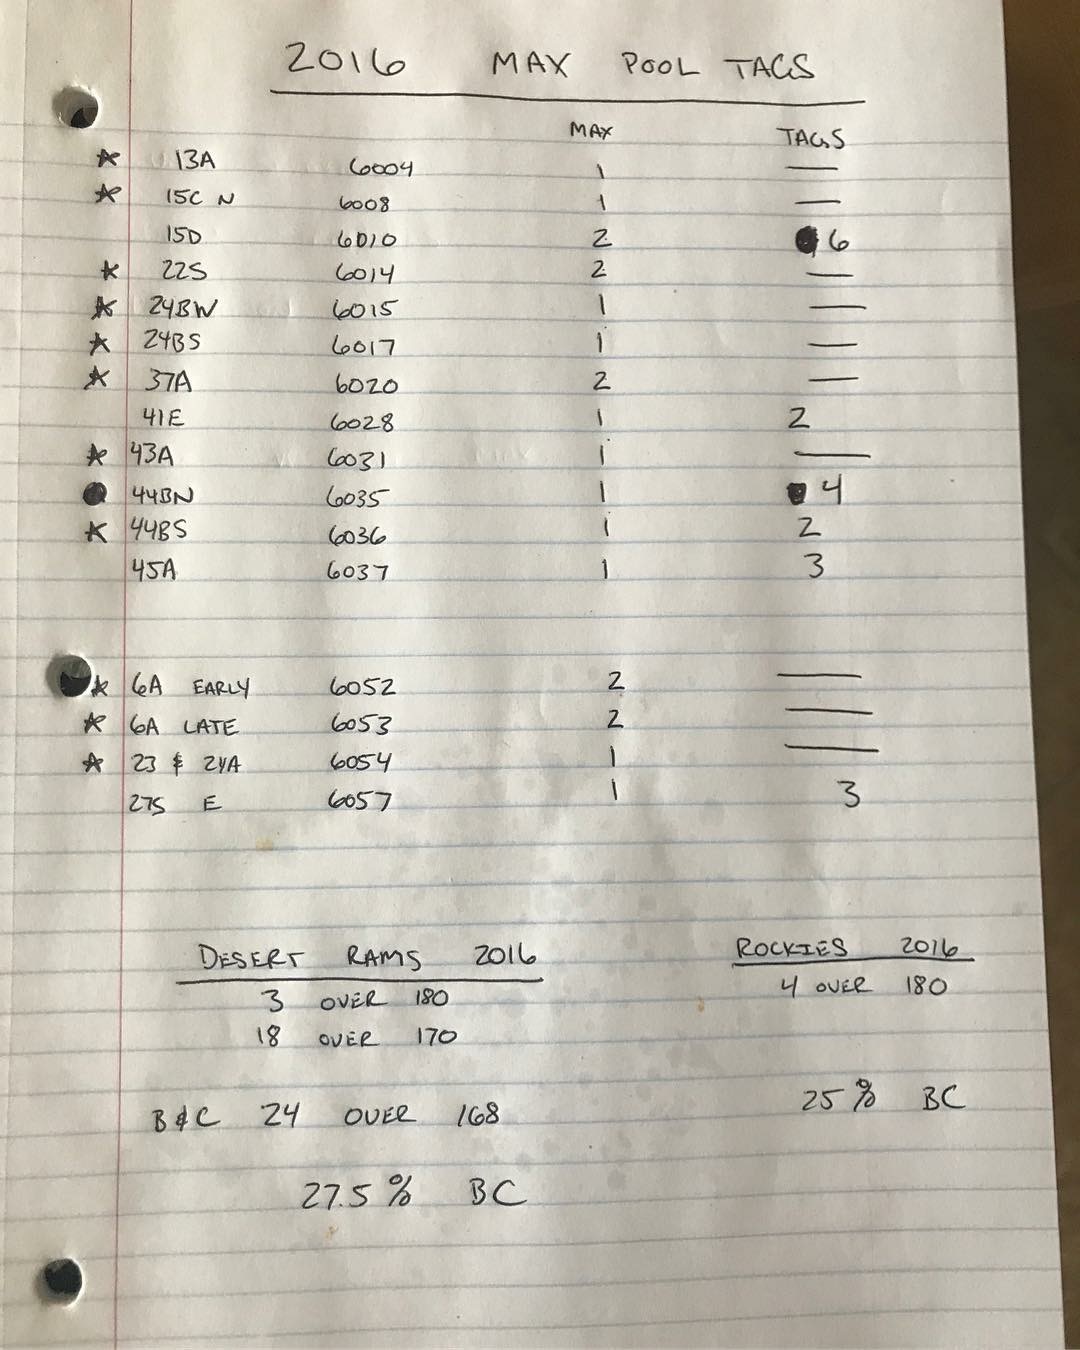 2016 MAX POOL TAGS
MAX TAGS
★ 13A 6004 1 —
★ 15C N 6008 1 —
15D 6010 2 6
★ 22S 6014 2 —
★ 24BW 6015 1 —
★ 24BS 6017 1 —
★ 37A 6020 2 —
41E 6028 1 2
★ 43A 6031 1 —
44BN 6035 1 4
★ 44BS 6036 1 2
45A 6037 1 3
★ 6A EARLY 6052 2 —
★ 6A LATE 6053 2 —
★ 23 & 24A 6054 1 —
27S E 6057 1 3
DESERT RAMS 2016
3 OVER 180
18 OVER 170
B&C 24 OVER 168
27.5% BC
ROCKIES 2016
4 OVER 180
25% BC